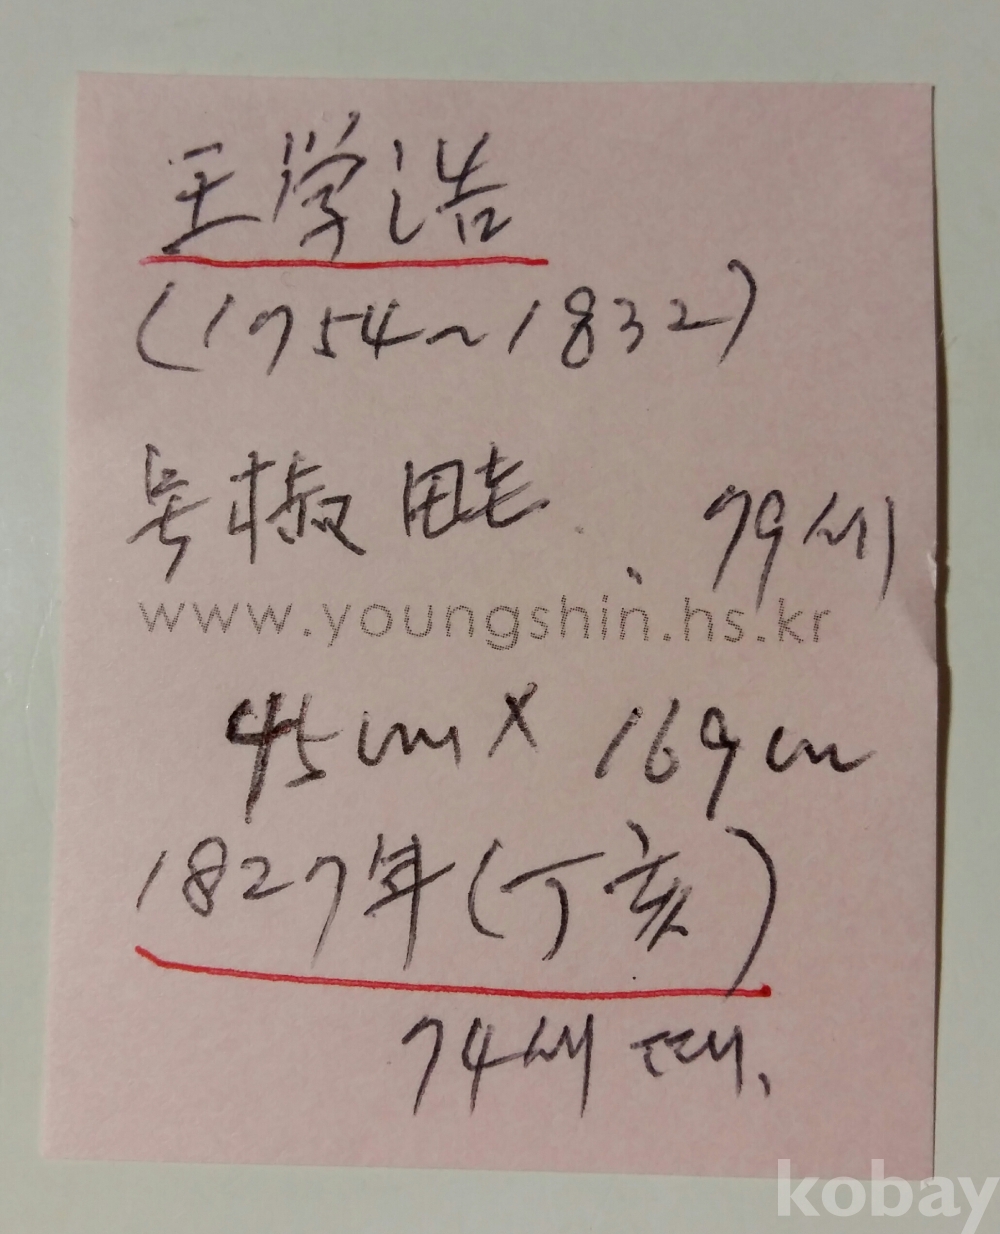 王学浩
(1754~1832)
号椒畦 79세
www.youngshin.hs.kr
45cm X 169cm
1827年(丁亥)
74세 때.
kobay